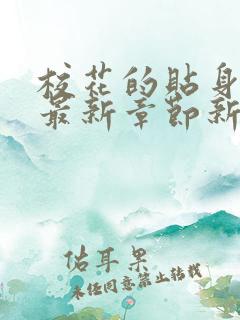 校花的贴身
最新章节新
佑耳果
未经同意禁止转载